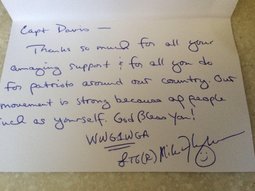 Capt Davis —
Thanks so much for all your
amazing support & for all you do
for patriots around our country. Our
movement is strong because of people
such as yourself. God Bless You!
WWG1WGA
LTG(R)